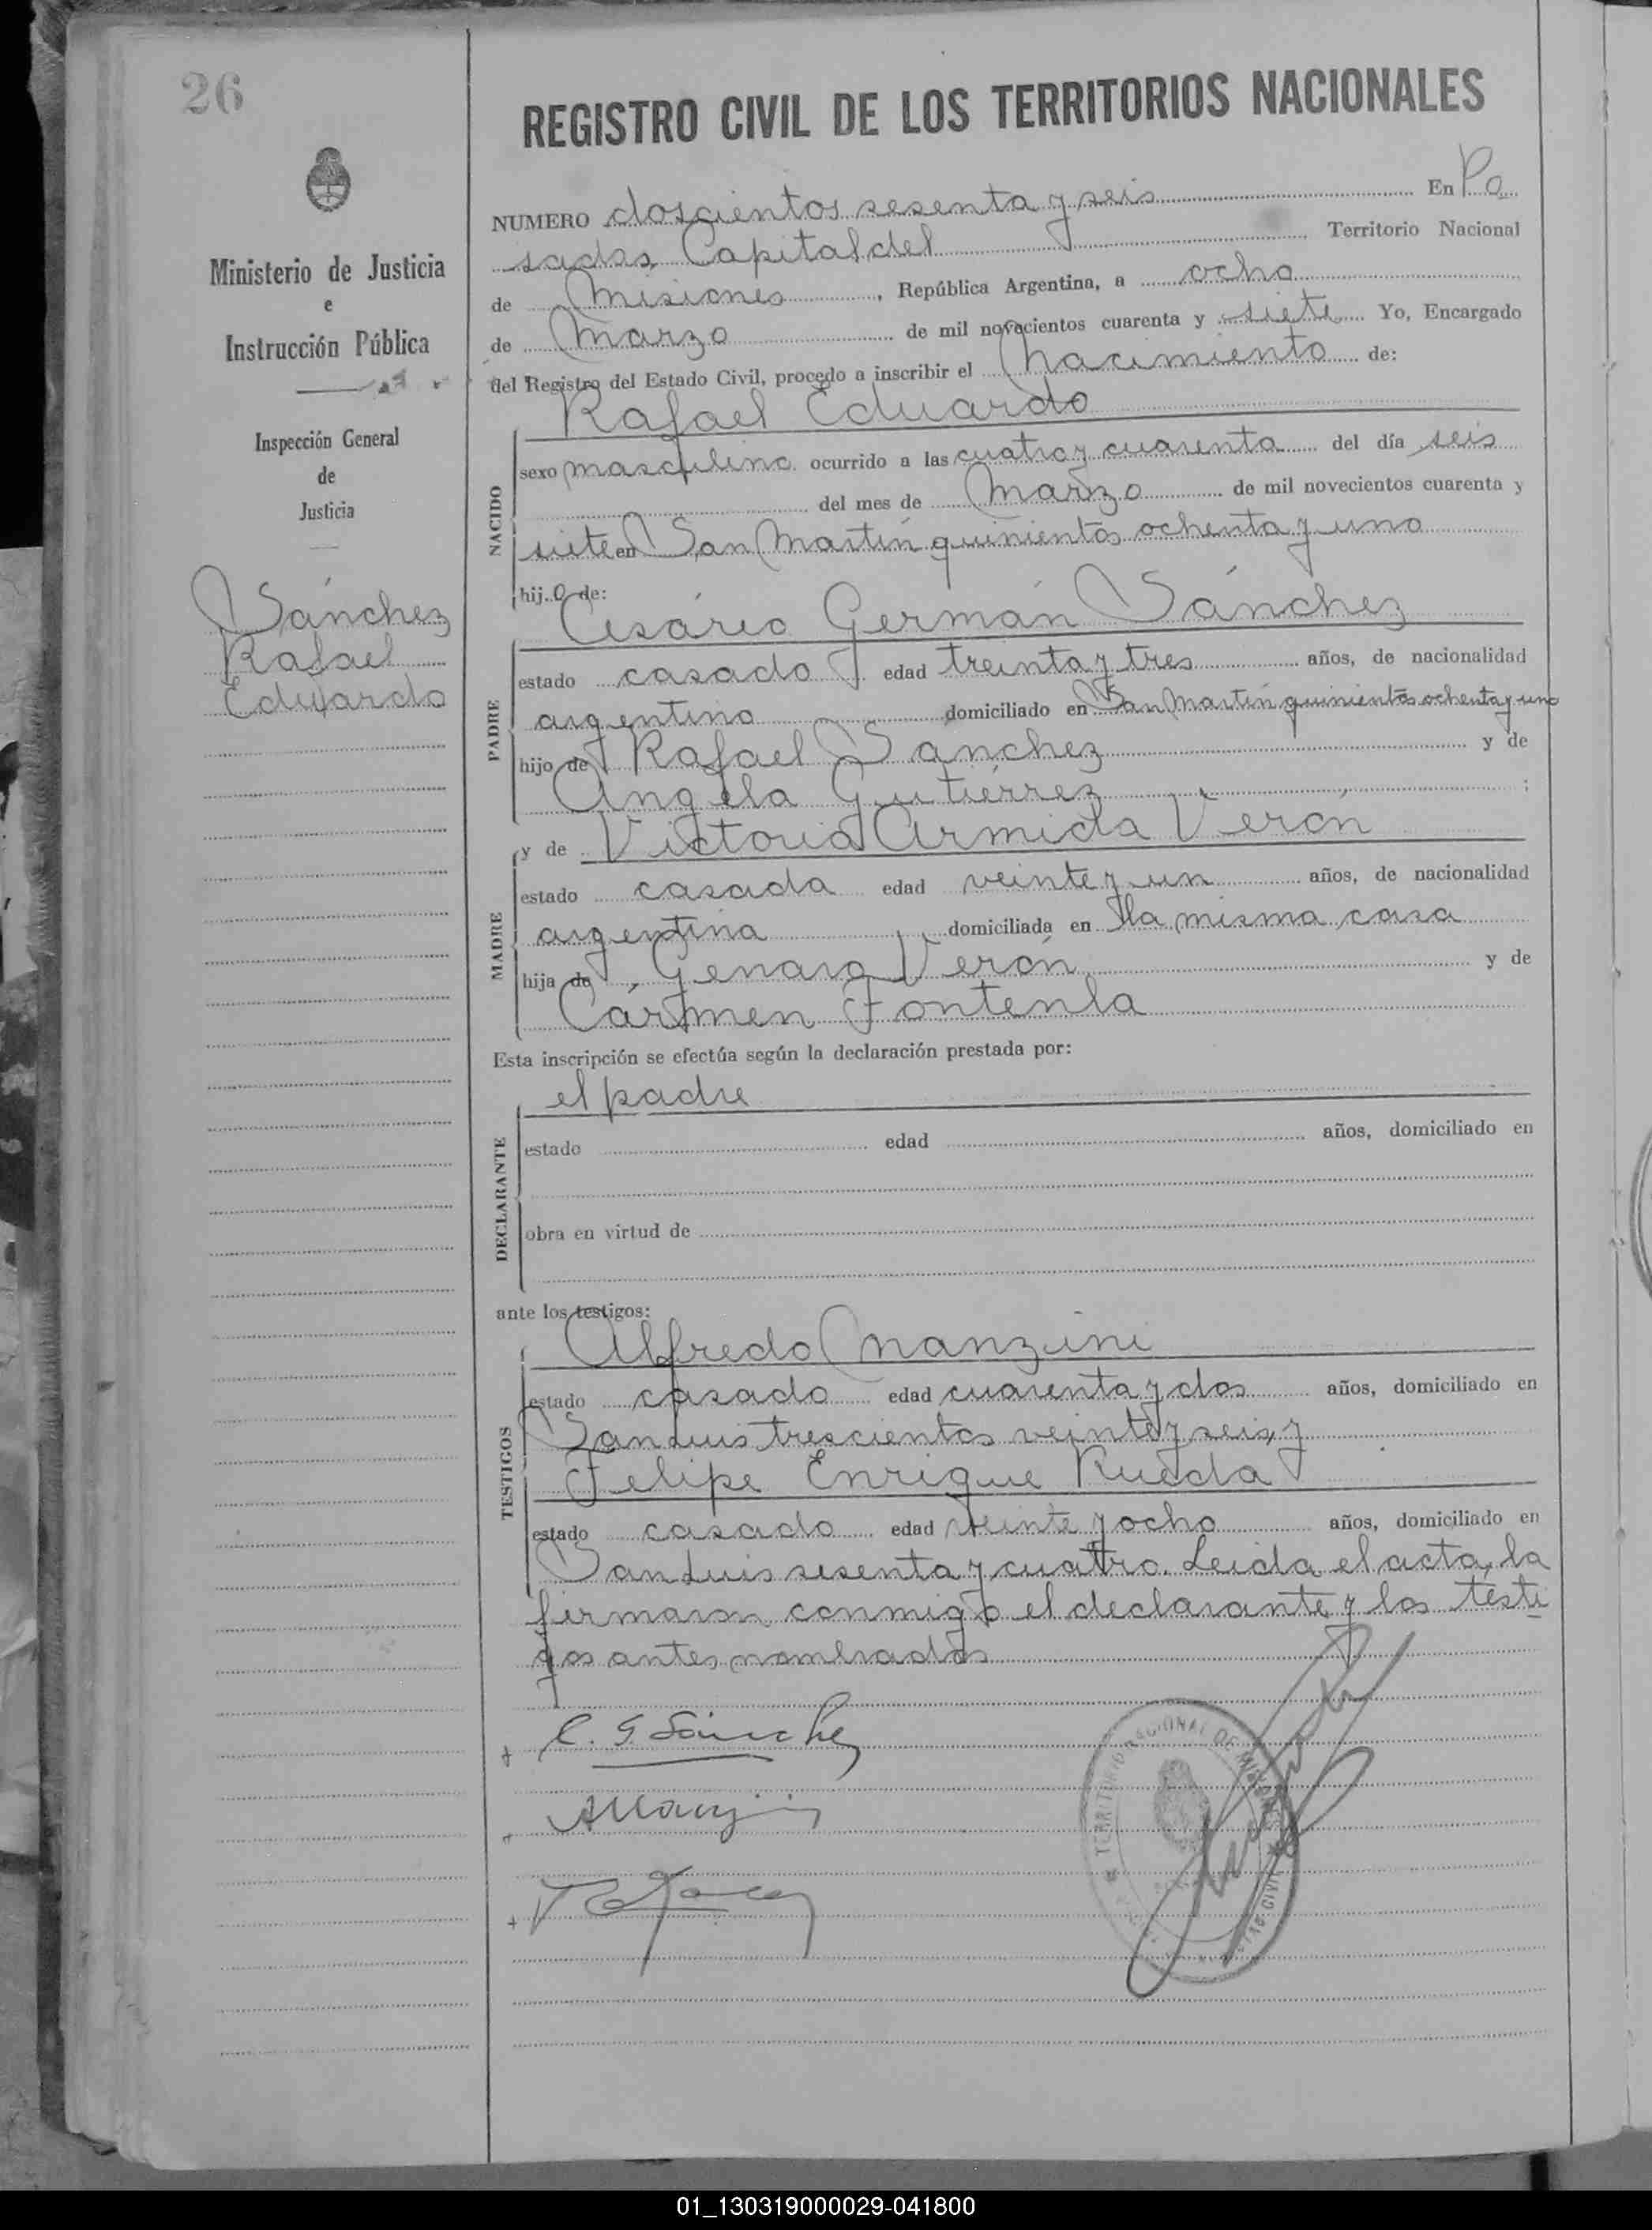 26
REGISTRO CIVIL DE LOS TERRITORIOS NACIONALES
Ministerio de Justicia
e
Instrucción Pública
Inspección General
de
Justicia
Sánchez
Rafael
Eduardo
NUMERO doscientos sesenta y seis En Po
sadas, Capital del Territorio Nacional
de Misiones, República Argentina, a ocho
de Marzo de mil novecientos cuarenta y siete Yo, Encargado
del Registro del Estado Civil, procedo a inscribir el nacimiento de:
Rafael Eduardo
NACIDO
sexo masculino ocurrido a las cuatro y cuarenta del día seis
del mes de Marzo de mil novecientos cuarenta y
siete en San Martín quinientos ochenta y uno
hijo de:
Cesáreo Germán Sánchez
PADRE
estado casado edad treinta y tres años, de nacionalidad
argentino domiciliado en San Martín quinientos ochenta y uno
hijo de Rafael Sánchez y de
Angela Gutiérrez;
y de Victoria Armida Verón
MADRE
estado casada edad veinte y un años, de nacionalidad
argentina domiciliada en la misma casa
hija de Genaro Verón y de
Cármen Fontenla
Esta inscripción se efectúa según la declaración prestada por:
el padre
DECLARANTE
estado edad años, domiciliado en
obra en virtud de
ante los testigos:
Alfredo Manzini
TESTIGOS
estado casado edad cuarenta y dos años, domiciliado en
San Luis trescientos veinte y seis, y
Felipe Enrique Rueda
estado casado edad veinte y ocho años, domiciliado en
San Luis sesenta y cuatro. Leida el acta, la
firmaron conmigo el declarante y los testi
gos antes nombrados
C. G. Sánchez
AManzini
TERRITORIO NACIONAL DE MISIONES
CIVIL
01_130319000029-041800